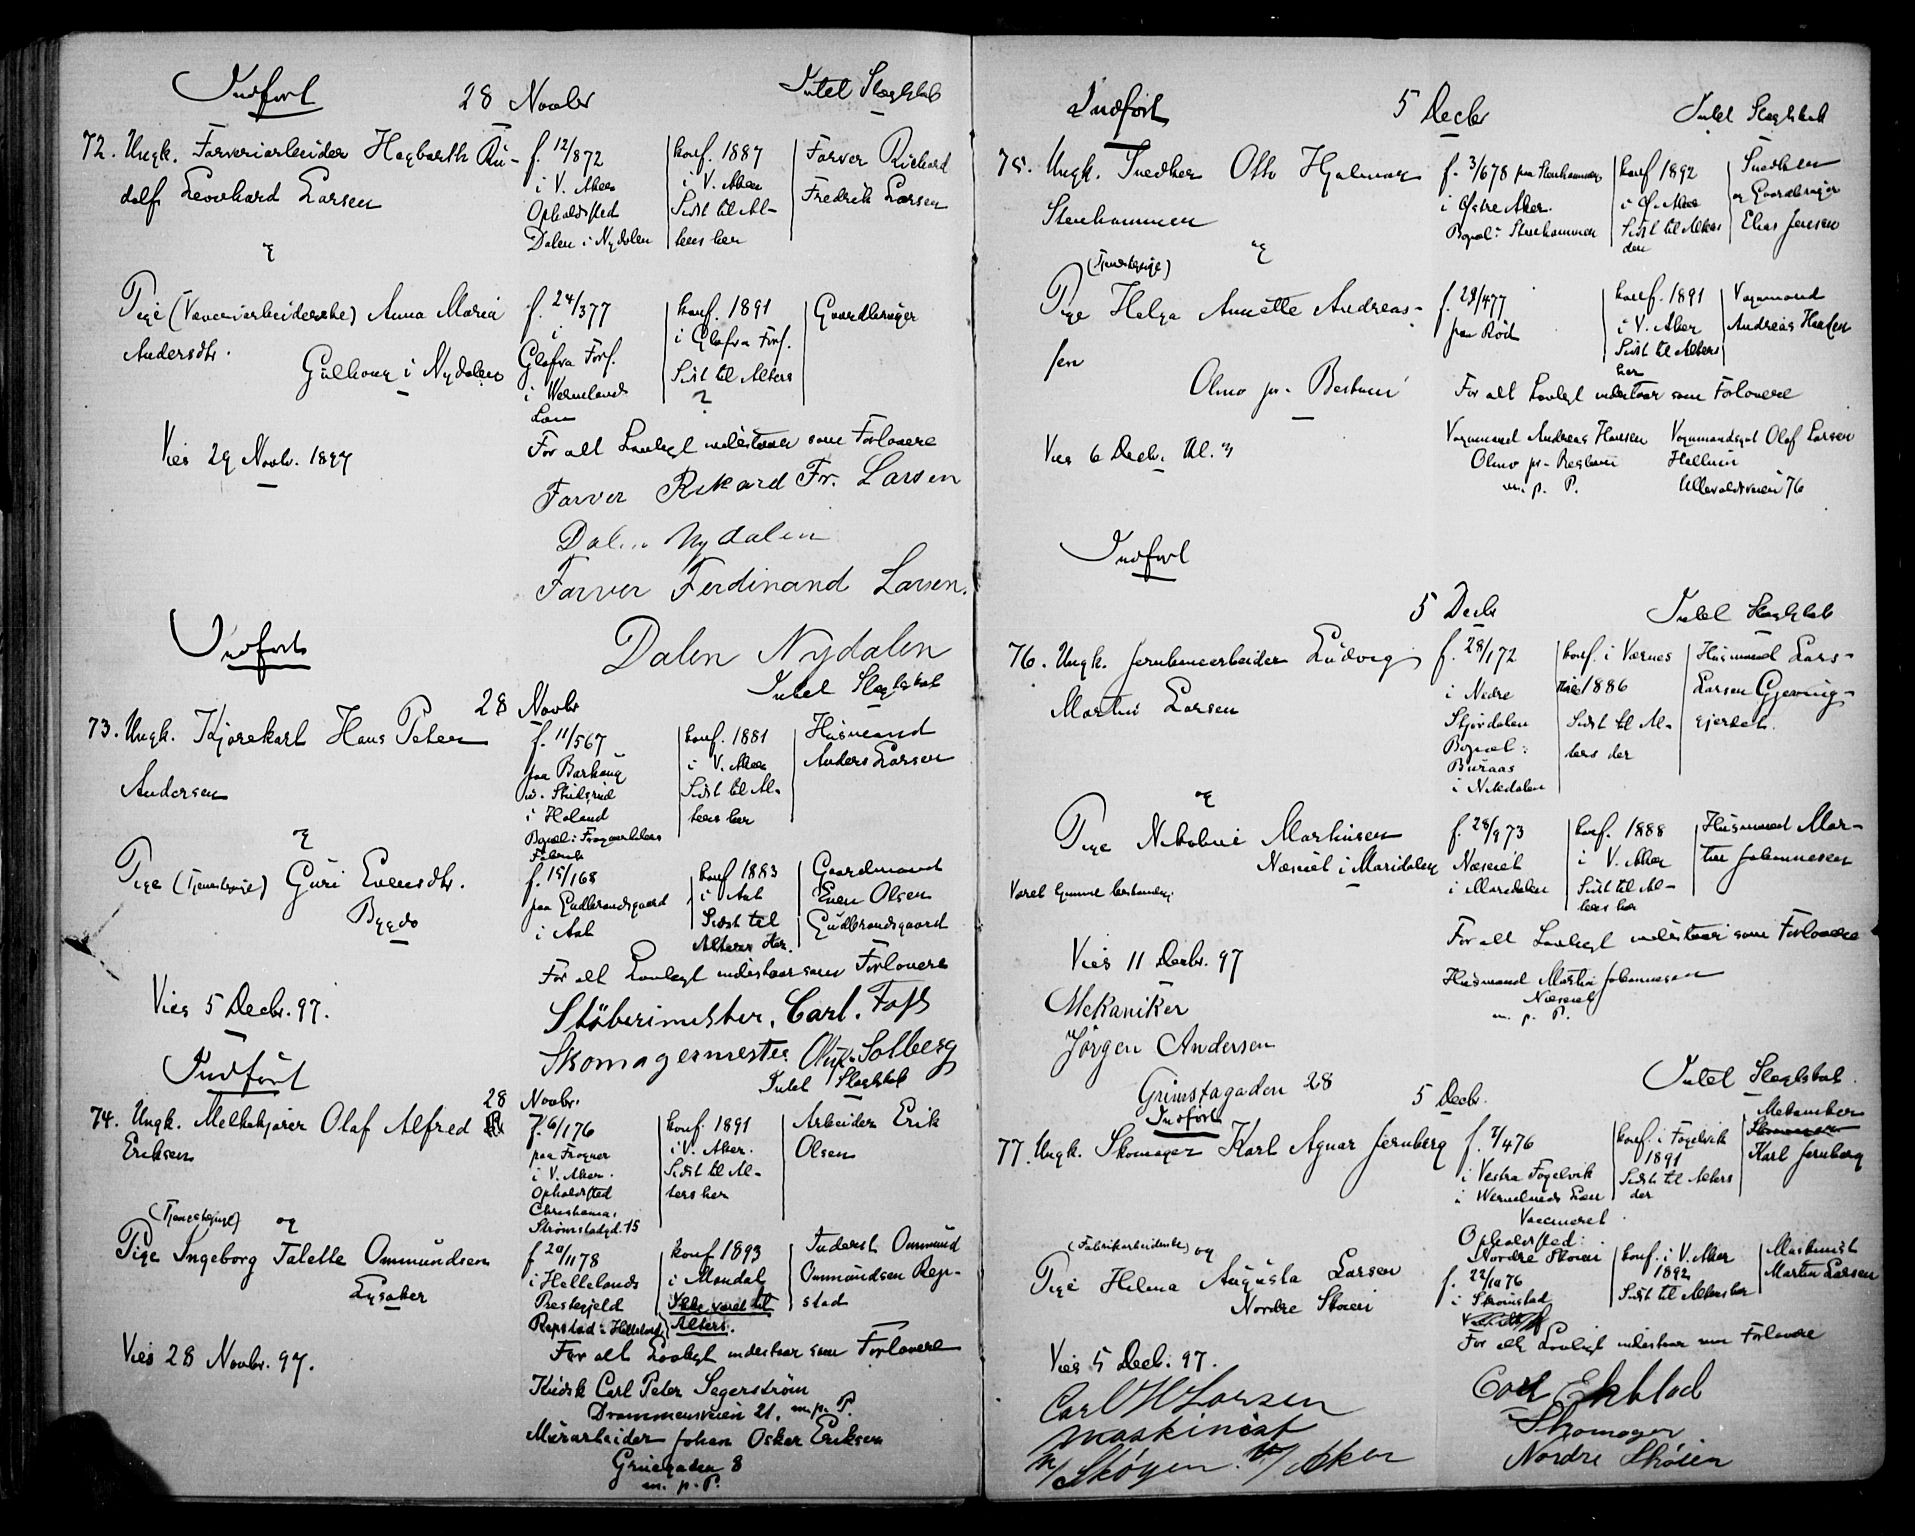 Indført
28 Novbr
Intet Slægtskab
72. Ungk. Farveriarbeider Hagbarth Ru-
dolf Leonhard Larsen
f. 12/872
i V. Aker
Opholdssted
Dalen i Nydalen
konf. 1887
i V. Aker
Sidst til Al-
ters her
Farver Rickard
Fredrik Larsen
&
Pige (Væveriarbeiderske) Anna Maria
Andersdtr.
Gulhaug i Nydalen
f. 24/377
i
Glafva Fors.
i Wermlands
Län
konf. 1891
i Glafva Fors.
Sidst til Alters
?
Gaardbruger
Vies 29 Novbr. 1897
For alt Lovligt indestaar som Forlovere
Farver Rikard Fr. Larsen
Dalen Nydalen
Farver Ferdinand Larsen.
Dalen Nydalen
Indført
28 Novbr
Intet Slægtskab
73. Ungk. Kjørekarl Hans Peter
Andersen
f. 11/567
paa Barhaug
i Høland
Bopæl: Frognerkilens
Fabrik
konf. 1881
i V. Aker
Sidst til Al-
ters her
Husmand
Anders Larsen
&
Pige (Tjenestepige) Guri Evensdtr.
Bygdø
f. 15/168
paa Gudbrandsgaard
i Aal
konf 1883
i Aal
Sidst til
Alters her.
Gaardmand
Even Olsen
Gudbrandsgaard
Vies 5 Decbr. 97.
For alt Lovligt indestaar som Forlovere
Støberimester, Carl. Foss
Skomagermester Solberg
Indført
28 Novbr.
Intet Slægtskab
74. Ungk. Melkekjører Olaf Alfred
Eriksen
f. 6/176
paa Frogner
i V. Aker.
Opholdssted
Christiania,
Strømstadgd. 15
konf. 1891
i V. Aker.
Sidst til Al-
ters her
Arbeider Erik
Olsen
(Tjenestepige) og
Pige Ingeborg Talette Ommundsen
Lysaker
f 20/1178
i Hellelands
Prestegjeld
Repstad i Helleland
konf 1893
i Mandal
Ikke været til
Alters.
Inderst Ommund
Ommundsen Rep-
stad
Vies 28 Novbr. 97.
For alt Lovligt indestaar som Forlovere
Kudsk Carl Peter Segerström
Drammensveien 21. m. p. P.
Murarbeider Johan Oskar Eriksen
Gruegaden 8
m. p. P.
Indført
5 Decbr
Intet Slægtskab
75. Ungk. Snedker Otto Hjalmar
Stenhammer
f. 3/678 paa Stenhammer
i Østre Aker.
Bopæl: Stenhammer
konf 1892
i Ø. Aker
Sidst til Alters
der
Snedker
og Gaardbruger
Elias Jensen
&
(Tjenestepige)
Pige Helga Annette Andreas-
sen
Olmo pr. Bestum
f. 29/477
paa Röd
konf. 1891
i V. Aker
Sidst til Alters
her
Vognmand
Andreas Hansen
Vies 6 Decbr. Kl. 3
For alt Lovligt indestaar som Forlovere
Vognmand Andreas Hansen
Olmo pr. Bestum
m. p. P.
Olaf Larsen
Ullevoldsveien 76
Indført
5 Decbr
Intet Slægtskab
76. Ungk. Jernbanearbeider Ludvig
Martin Larsen
f. 28/172
i Nedre
Stjørdalen
Bopæl:
Buraas
i Nitedalen
konf. i Værnes
1886
Sidst til Al-
ters der
Husmand Lars
Larsen Gjeving-
ejerdet.
&
Pige Nikoline Martinsen
Næsset i Maridalen
f. 28/973
Næsset
i Maridalen
konf. 1888
i V. Aker
Sidst til Al-
ters her
Husmand Mar-
tin Johannesen
Vies 11 Decbr. 97
For alt Lovligt indestaar som Forlovere
Husmand Martin Johannesen
Næsset
m. p. P.
Mekaniker
Jørgen Andersen
Grimstagaden 28
Indført
5 Decbr.
Intet Slægtskab
77. Ungk. Skomager Karl Agnar Jernberg
f. 7/476
i Vestra Fogelvik
i Wermlands Län
Vaccineret.
Opholdssted:
Nordre Skøien
konf. i Fogelvik
1891
Sidst til Alters
der
Mekaniker
Karl Jernberg
(Fabrikarbeiderske) og
Pige Helena Augusta Larsen
Nordre Skøien
f. 22/1076
i Strømstad
konf. i V. Aker
1892
Sidst til Alters her
Maskinist
Martin Larsen
Vies 5 Decbr. 97.
For alt Lovligt indestaar som Forlovere
Carl M Larsen
maskinist
N/Skøyen V/Aker
Carl Ekblad
Skomager
Nordre Skøien